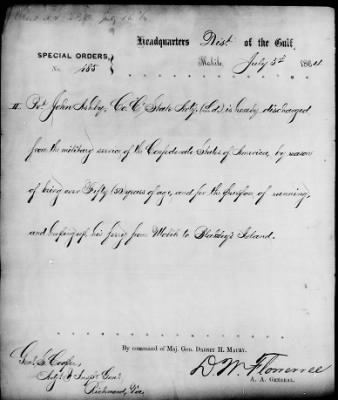 Headquarters Dist. of the Gulf,
Mobile, July 5th 1864
SPECIAL ORDERS,
No. 155
II. Pvt. John Ashby, Co. "C" State Arty. is hereby discharged
from the military service of the Confederate States of America, by reason
of being over Fifty (50) years of age, and for the purpose of running
and his ferry from Mobile to Island.
By command of Maj. Gen. DABNEY H. MAURY.
Genl. S. Cooper,
Adjt. & Insp. Genl.
Richmond, Va.
D. W. Flowerree
A. A. GENERAL.